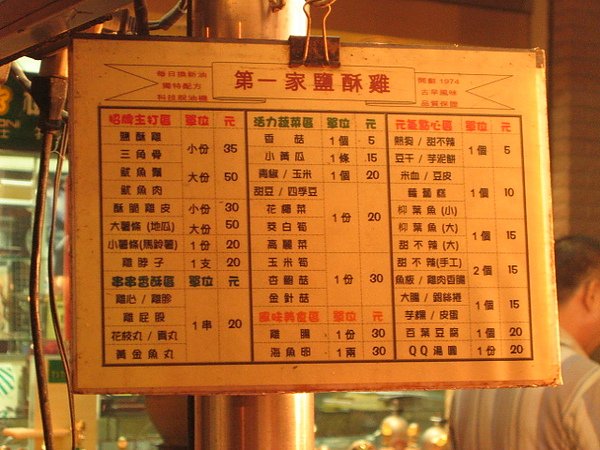 每日換新油
獨特配方
科技脫油機
第一家鹽酥雞
開創1974
古早風味
品質保證
招牌主打區 單位 元
鹽酥雞
三角骨
小份 35
魷魚鬚
魷魚肉
大份 50
酥脆雞皮 小份 30
大薯條(地瓜) 大份 50
小薯條(馬鈴薯) 1份 20
雞脖子 1支 20
串串香酥區 單位 元
雞心/雞胗
雞屁股
花枝丸/貢丸
黃金魚丸
1串 20
活力蔬菜區 單位 元
香菇 1個 5
小黃瓜 1條 15
青椒/玉米 1個 20
甜豆/四季豆
花椰菜
茭白筍
高麗菜
1份 20
玉米筍
杏鮑菇
金針菇
1份 30
原味美食區 單位 元
雞腸 1份 30
海魚卵 1兩 30
元氣點心區 單位 元
熱狗/甜不辣
豆干/芋泥餅
1個 5
米血/豆皮
蘿蔔糕
1個 10
柳葉魚(小)
柳葉魚(大)
甜不辣(大)
1個 15
甜不辣(手工)
魚板/雞肉香腸
2個 15
大腸/銀絲捲
芋粿/皮蛋
1個 15
百葉豆腐 1個 20
QQ湯圓 1份 20